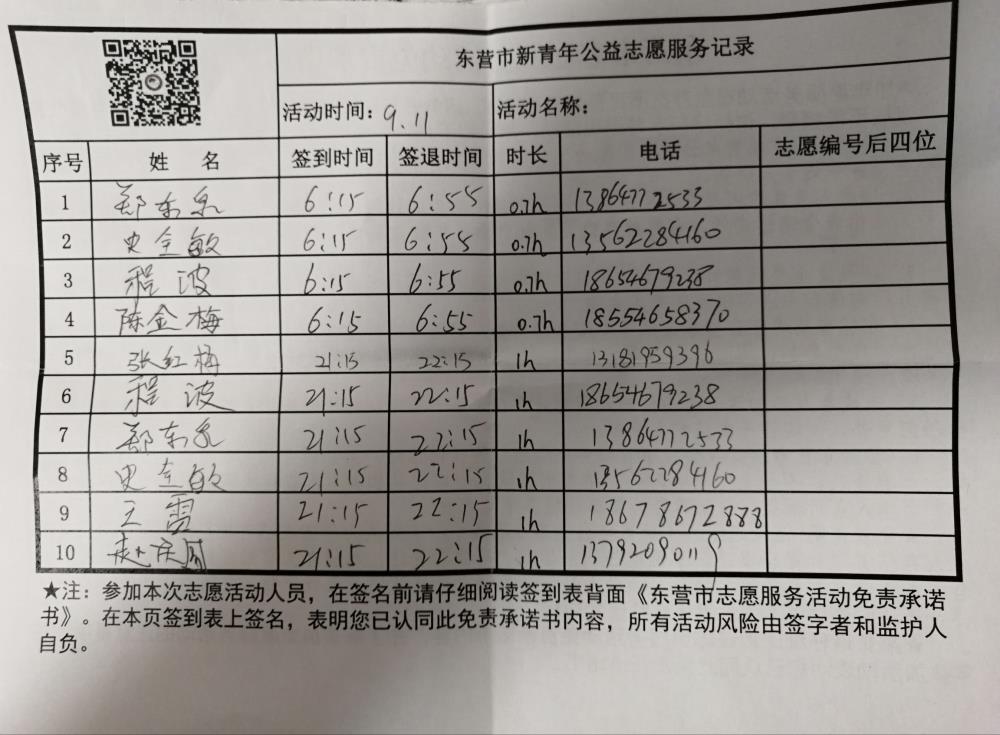 东营市新青年公益志愿服务记录
活动时间：9.11 活动名称：
序号 姓 名 签到时间 签退时间 时长 电话 志愿编号后四位
1 郑东泉 6:15 6:55 0.7h 13864772533
2 史全敏 6:15 6:55 0.7h 13562284160
3 程波 6:15 6:55 0.7h 18654679238
4 陈金梅 6:15 6:55 0.7h 18554658370
5 张红梅 21:15 22:15 1h 13181959396
6 程波 21:15 22:15 1h 18654679238
7 郑东泉 21:15 22:15 1h 13864772533
8 史全敏 21:15 22:15 1h 13562284160
9 王雷 21:15 22:15 1h 18678672888
10 21:15 22:15 1h 13792090119
★注：参加本次志愿活动人员，在签名前请仔细阅读签到表背面《东营市志愿服务活动免责承诺
书》。在本页签到表上签名，表明您已认同此免责承诺书内容，所有活动风险由签字者和监护人
自负。